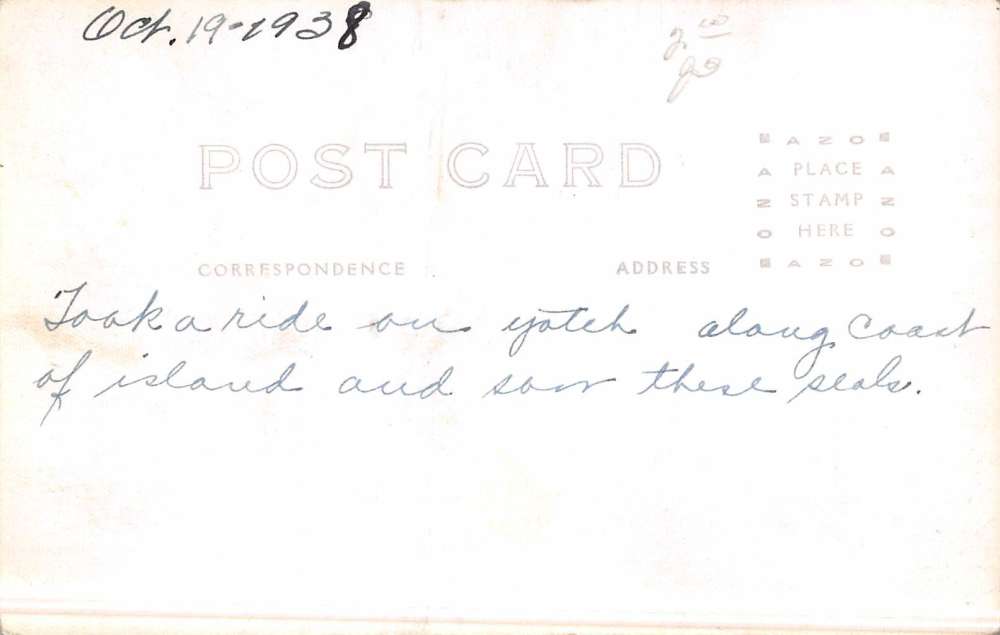 Oct. 19-1938
2.00
POST CARD
AZO
PLACE
STAMP
HERE
AZO
AZO
AZO
CORRESPONDENCE
ADDRESS
Took a ride on yotch along Coast
of island and saw these seals.